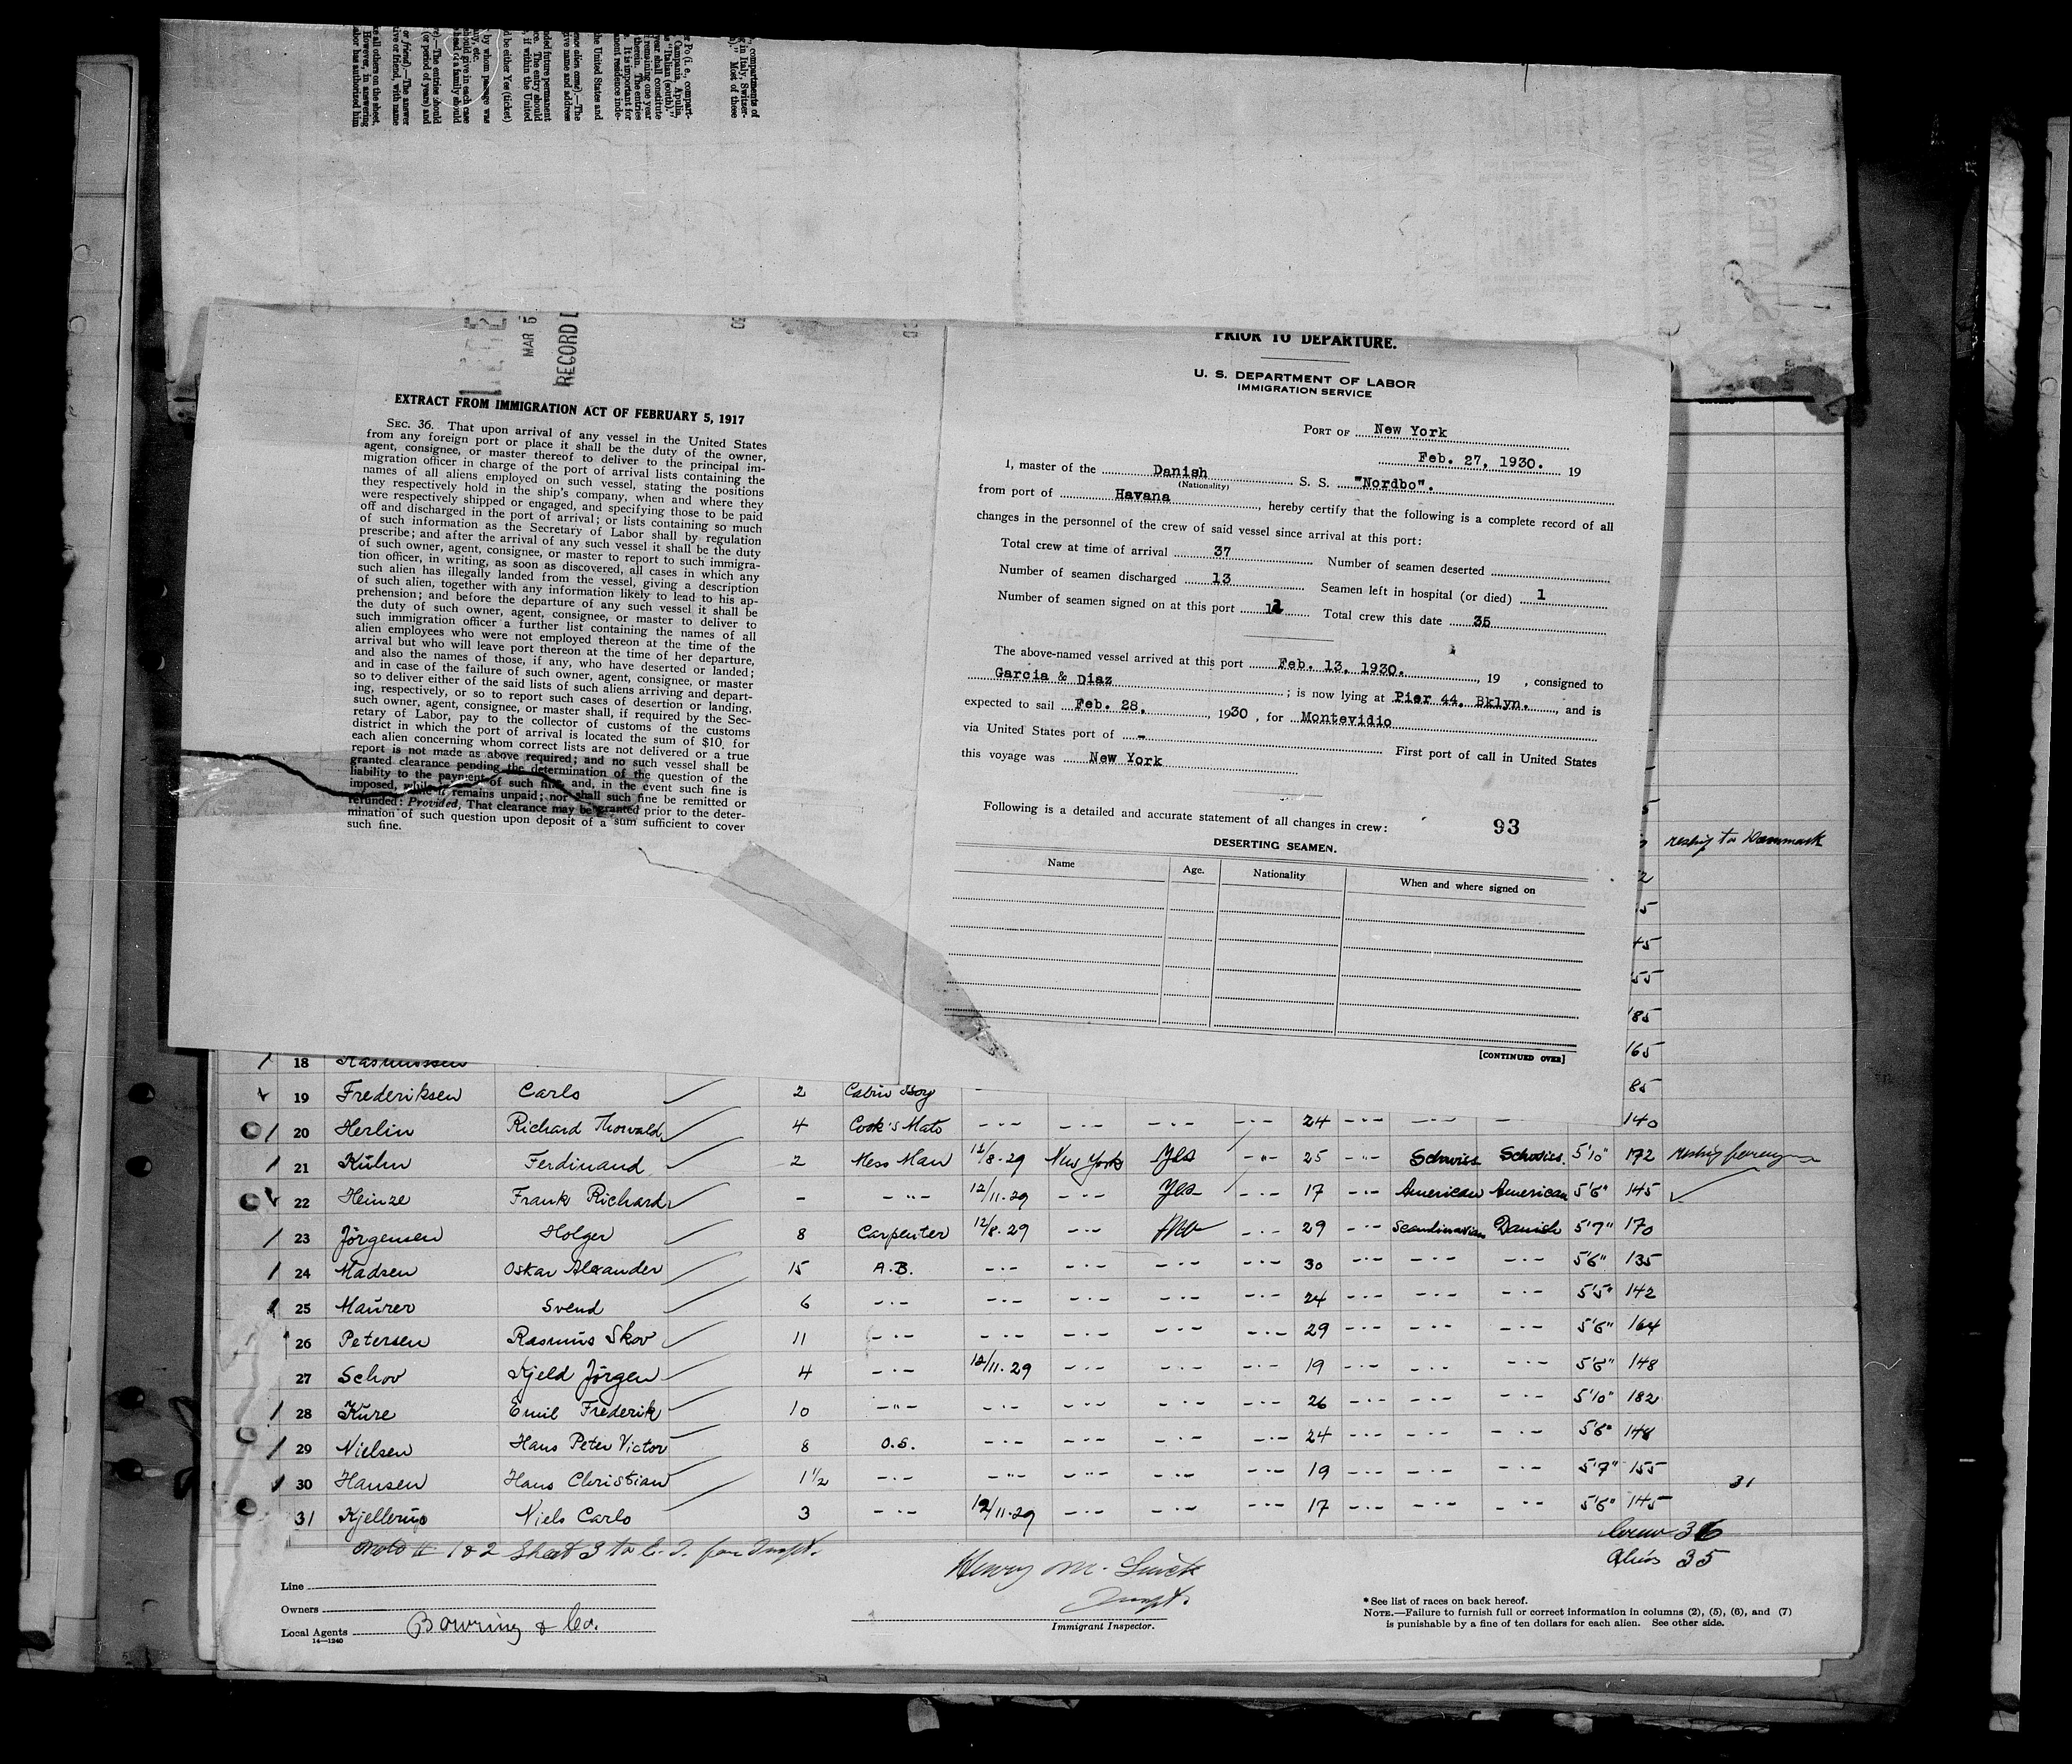 MAR 5
RECORD
EXTRACT FROM IMMIGRATION ACT OF FEBRUARY 5, 1917
SEC. 36. That upon arrival of any vessel in the United States
from any foreign port or place it shall be the duty of the owner,
agent, consignee, or master thereof to deliver to the principal im-
migration officer in charge of the port of arrival lists containing the
names of all aliens employed on such vessel, stating the positions
they respectively hold in the ship's company, when and where they
were respectively shipped or engaged, and specifying those to be paid
off and discharged in the port of arrival; or lists containing so much
of such information as the Secretary of Labor shall by regulation
prescribe; and after the arrival of any such vessel it shall be the duty
of such owner, agent, consignee, or master to report to such immigra-
tion officer, in writing, as soon as discovered, all cases in which any
such alien has illegally landed from the vessel, giving a description
of such alien, together with any information likely to lead to his ap-
prehension; and before the departure of any such vessel it shall be
the duty of such owner, agent, consignee, or master to deliver to
such immigration officer a further list containing the names of all
alien employees who were not employed thereon at the time of the
arrival but who will leave port thereon at the time of her departure,
and also the names of those, if any, who have deserted or landed;
and in case of the failure of such owner, agent, consignee, or master
so to deliver either of the said lists of such aliens arriving and depart-
ing, respectively, or so to report such cases of desertion or landing,
such owner, agent, consignee, or master shall, if required by the Sec-
retary of Labor, pay to the collector of customs of the customs
district in which the port of arrival is located the sum of $10 for
each alien concerning whom correct lists are not delivered or a true
report is not made as above required; and no such vessel shall be
granted clearance pending the determination of the question of the
liability to the payment of such fine, and, in the event such fine is
imposed, while it remains unpaid; nor shall such fine be remitted or
refunded: Provided, That clearance may be granted prior to the deter-
mination of such question upon deposit of a sum sufficient to cover
such fine.
PRIOR TO DEPARTURE.
U. S. DEPARTMENT OF LABOR
IMMIGRATION SERVICE
PORT OF New York
Feb. 27, 1930. 19
I, master of the Danish S. S. "Nordbo".
(Nationality)
from port of Havana, hereby certify that the following is a complete record of all
changes in the personnel of the crew of said vessel since arrival at this port:
Total crew at time of arrival 37 Number of seamen deserted
Number of seamen discharged 13 Seamen left in hospital (or died) 1
Number of seamen signed on at this port Total crew this date 35
The above-named vessel arrived at this port Feb. 13, 1930., 19 , consigned to
Garcia & Diaz; is now lying at Pier 44, Bklyn., and is
expected to sail Feb. 28, 1930, for Montevidio
via United States port of - First port of call in United States
this voyage was New York
Following is a detailed and accurate statement of all changes in crew: 93
DESERTING SEAMEN.
Name Age. Nationality When and where signed on
[CONTINUED OVER]
reship to Denmark
55
185
165
18 Rasmussen
19 Frederiksen Carlo 2 Cabin Boy 85
20 Herlin Richard Thorwald 4 Cook's Mate -"- -"- -"- -"- 24 -"- -"- - 140
21 Kühn Ferdinand 2 Mess Man 12/8-29 New York Yes -"- 25 -"- Schwiss Schwiss 5'10" 172 reship foreign
22 Heinze Frank Richard - -"- 12/11-29 -"- Yes -"- 17 -"- American American 5'6" 145
23 Jörgensen Holger 8 Carpenter 12/8-29 -"- No -"- 29 -"- Scandinavian Danish 5'7" 170
24 Madsen Oskar Alexander 15 A.B. -"- -"- -"- -"- 30 -"- -"- -"- 5'6" 135
25 Maurer Svend 6 -"- -"- -"- -"- -"- 24 -"- -"- -"- 5'5" 142
26 Petersen Rasmus Skov 11 -"- -"- -"- -"- -"- 29 -"- -"- -"- 5'6" 164
27 Schov Kjeld Jörgen 4 -"- 12/11-29 -"- -"- -"- 19 -"- -"- -"- 5'6" 148
28 Kure Emil Frederik 10 -"- -"- -"- -"- -"- 26 -"- -"- -"- 5'10" 182
29 Nielsen Hans Peter Victor 8 O.S. -"- -"- -"- -"- 24 -"- -"- -"- 5'6" 148
30 Hansen Hans Christian 1 1/2 -"- -"- -"- -"- -"- 19 -"- -"- -"- 5'7" 155
31
31 Kjellerup Niels Carlo 3 -"- 12/11-29 -"- -"- -"- 17 -"- -"- -"- 5'6" 145
Crew 36
Aliens 35
1 & 2 Sheet 3 for Inspt.
Henry M.
Inspt.
Immigrant Inspector.
Line
Owners
Local Agents Bowring & Co.
14—1240
* See list of races on back hereof.
NOTE.—Failure to furnish full or correct information in columns (2), (5), (6), and (7)
is punishable by a fine of ten dollars for each alien. See other side.